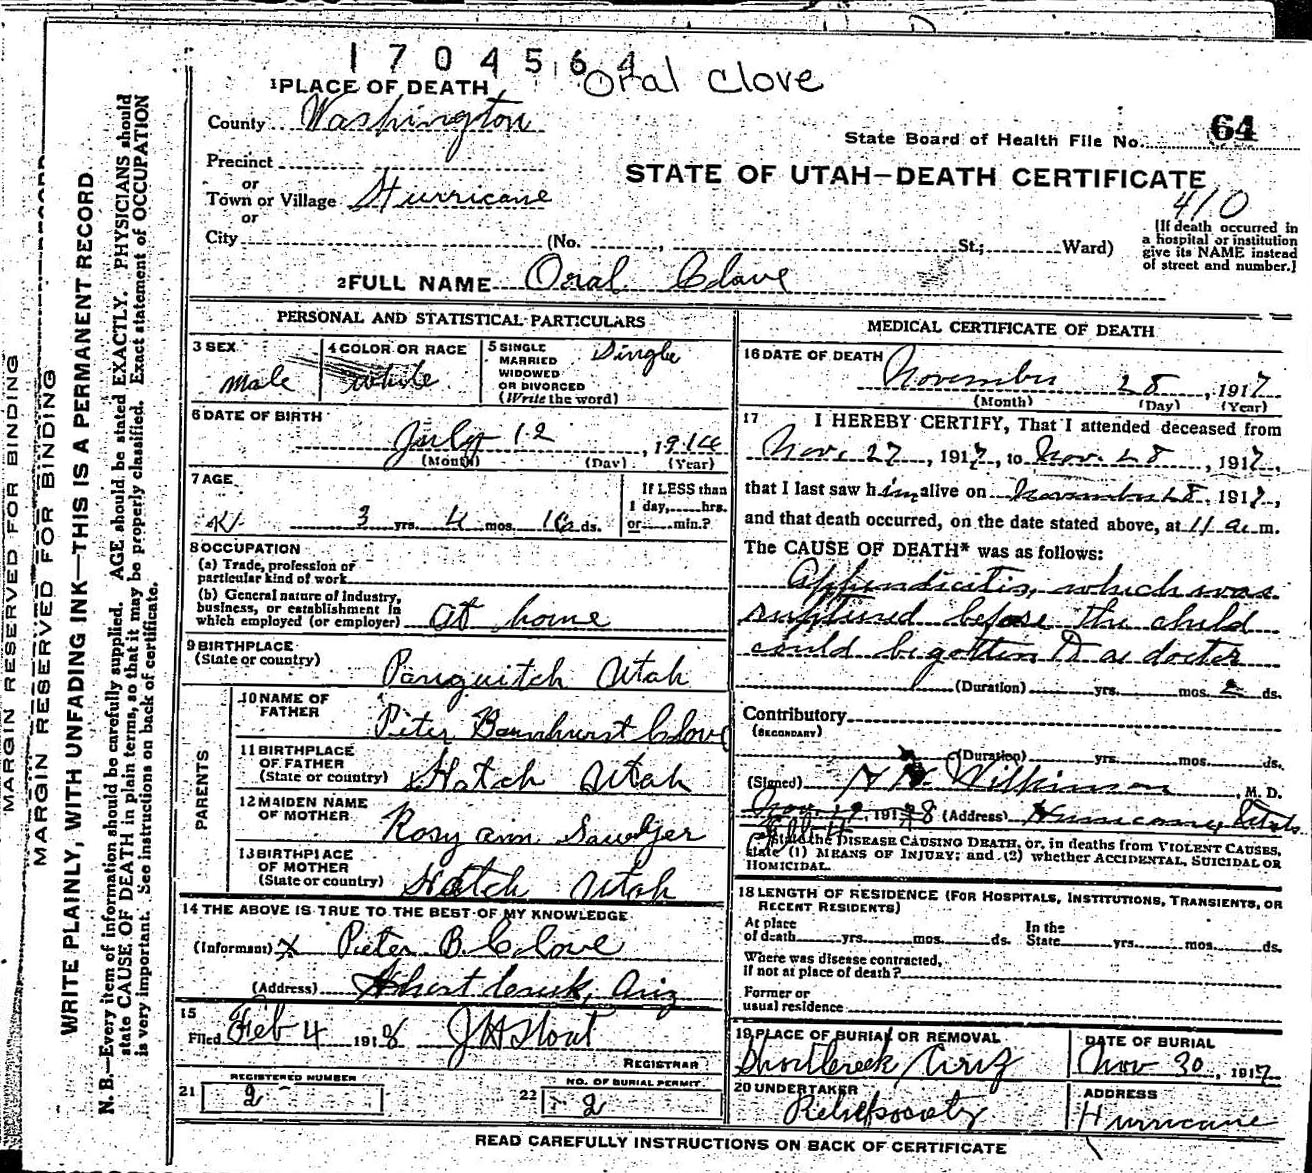 1704564
Oral Clove
1 PLACE OF DEATH
County Washington
State Board of Health File No. 64
Precinct
or
Town or Village Hurricane
or
City (No. , St.; Ward)
STATE OF UTAH—DEATH CERTIFICATE
410
[If death occurred in
a hospital or institution
give its NAME instead
of street and number.]
2 FULL NAME Oral Clove
PERSONAL AND STATISTICAL PARTICULARS
3 SEX
Male
4 COLOR OR RACE
White
5 SINGLE
MARRIED
WIDOWED
OR DIVORCED
(Write the word)
Single
6 DATE OF BIRTH
July 12, 1914
(Month) (Day) (Year)
7 AGE
3 yrs. 4 mos. 16 ds.
If LESS than
1 day, hrs.
or min.?
8 OCCUPATION
(a) Trade, profession or
particular kind of work
(b) General nature of industry,
business, or establishment in
which employed (or employer) at home
9 BIRTHPLACE
(State or country)
Panguitch Utah
PARENTS
10 NAME OF
FATHER
Peter Barnhurst Clove
11 BIRTHPLACE
OF FATHER
(State or country) Hatch Utah
12 MAIDEN NAME
OF MOTHER
Rosy ann Sawyer
13 BIRTHPLACE
OF MOTHER
(State or country) Hatch Utah
14 THE ABOVE IS TRUE TO THE BEST OF MY KNOWLEDGE
(Informant) X Pieter B. Clove
(Address) Short Creek, Ariz
15
Filed Feb 4 1918 J H Stout
REGISTRAR
21 REGISTERED NUMBER
2
22 NO. OF BURIAL PERMIT
2
MEDICAL CERTIFICATE OF DEATH
16 DATE OF DEATH
November 28, 1917
(Month) (Day) (Year)
17 I HEREBY CERTIFY, That I attended deceased from
Nov. 27, 1917, to Nov. 28, 1917,
that I last saw him alive on November 28, 1917,
and that death occurred, on the date stated above, at 11 a.m.
The CAUSE OF DEATH* was as follows:
Appendicitis, which was
ruptured before the child
could be gotten to a doctor
(Duration) yrs. mos. 2 ds.
Contributory
(SECONDARY)
(Duration) yrs. mos. ds.
(Signed) Wilkinson, M. D.
191 8 (Address) Hurricane Utah
state the DISEASE CAUSING DEATH, or, in deaths from VIOLENT CAUSES,
state (1) MEANS OF INJURY; and (2) whether ACCIDENTAL, SUICIDAL OR
HOMICIDAL.
18 LENGTH OF RESIDENCE (FOR HOSPITALS, INSTITUTIONS, TRANSIENTS, OR
RECENT RESIDENTS)
At place
of death yrs. mos. ds.
In the
State yrs. mos. ds.
Where was disease contracted,
if not at place of death?
Former or
usual residence
19 PLACE OF BURIAL OR REMOVAL
Shortcreek Ariz
DATE OF BURIAL
Nov 30, 1917
20 UNDERTAKER
Relief society
ADDRESS
Hurricane
READ CAREFULLY INSTRUCTIONS ON BACK OF CERTIFICATE
MARGIN RESERVED FOR BINDING
MARGIN RESERVED FOR BINDING
WRITE PLAINLY, WITH UNFADING INK—THIS IS A PERMANENT RECORD
N. B.—Every item of information should be carefully supplied. AGE should be stated EXACTLY. PHYSICIANS should
state CAUSE OF DEATH in plain terms, so that it may be properly classified. Exact statement of OCCUPATION
is very important. See instructions on back of certificate.